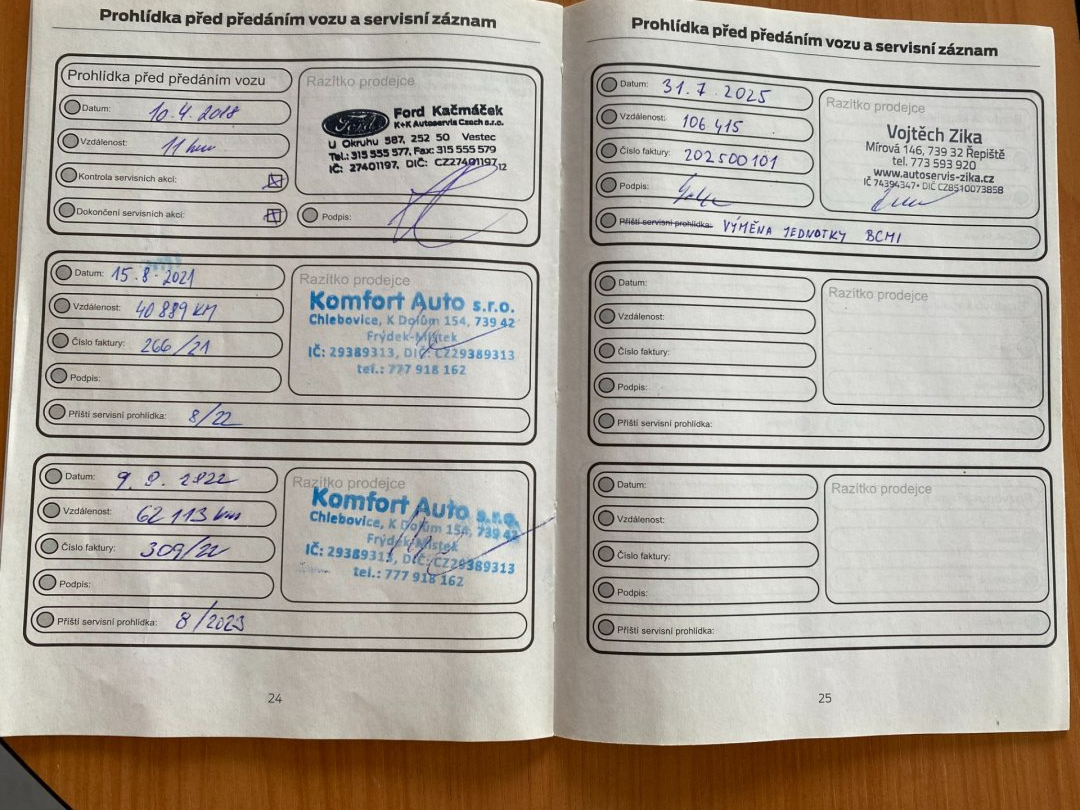 Prohlídka před předáním vozu a servisní záznam
Prohlídka před předáním vozu
Datum: 10.4.2018
Vzdálenost: 11 km
Kontrola servisních akcí:
Dokončení servisních akcí:
Razítko prodejce
Ford
Ford Kačmáček
K+K Autoservis Czech s.r.o.
U Okruhu 587, 252 50 Vestec
Tel.: 315 555 577, Fax: 315 555 579
IČ: 27401197, DIČ: CZ27401197
12
Podpis:
Datum: 15.8.2021
Vzdálenost: 40 889 KM
Číslo faktury: 266/21
Podpis:
Příští servisní prohlídka: 8/22
Razítko prodejce
Komfort Auto s.r.o.
Chlebovice, K Dolům 154, 739 42
Frýdek-Místek
IČ: 29389313, DIČ: CZ29389313
tel.: 777 918 162
Datum: 9.8.2022
Vzdálenost: 62 113 km
Číslo faktury: 309/22
Podpis:
Příští servisní prohlídka: 8/2023
Razítko prodejce
Komfort Auto s.r.o.
Chlebovice, K Dolům 154, 739 42
Frýdek-Místek
IČ: 29389313, DIČ: CZ29389313
tel.: 777 918 162
24
Prohlídka před předáním vozu a servisní záznam
Datum: 31.7.2025
Vzdálenost: 106 415
Číslo faktury: 202500101
Podpis:
Příští servisní prohlídka: VÝMĚNA JEDNOTKY BCMI
Razítko prodejce
Vojtěch Zika
Mírová 146, 739 32 Řepiště
tel. 773 593 920
www.autoservis-zika.cz
IČ 74394347 • DIČ CZ8510073858
Datum:
Vzdálenost:
Číslo faktury:
Podpis:
Příští servisní prohlídka:
Razítko prodejce
Datum:
Vzdálenost:
Číslo faktury:
Podpis:
Příští servisní prohlídka:
Razítko prodejce
25